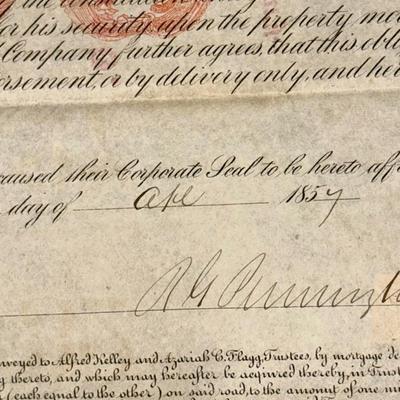 for his security, upon the property mor
d Company further agrees, that this obli
orsement, or by delivery only, and her
caused their Corporate Seal to be hereto aff
day of Apl 1857
nveyed to Alfred Kelley and Azariah C. Flagg, Trustees, by mortgage de
g thereto, and which may hereafter be acquired thereby, in Trust
(each equal to the other) on said road, to the amount of one mi